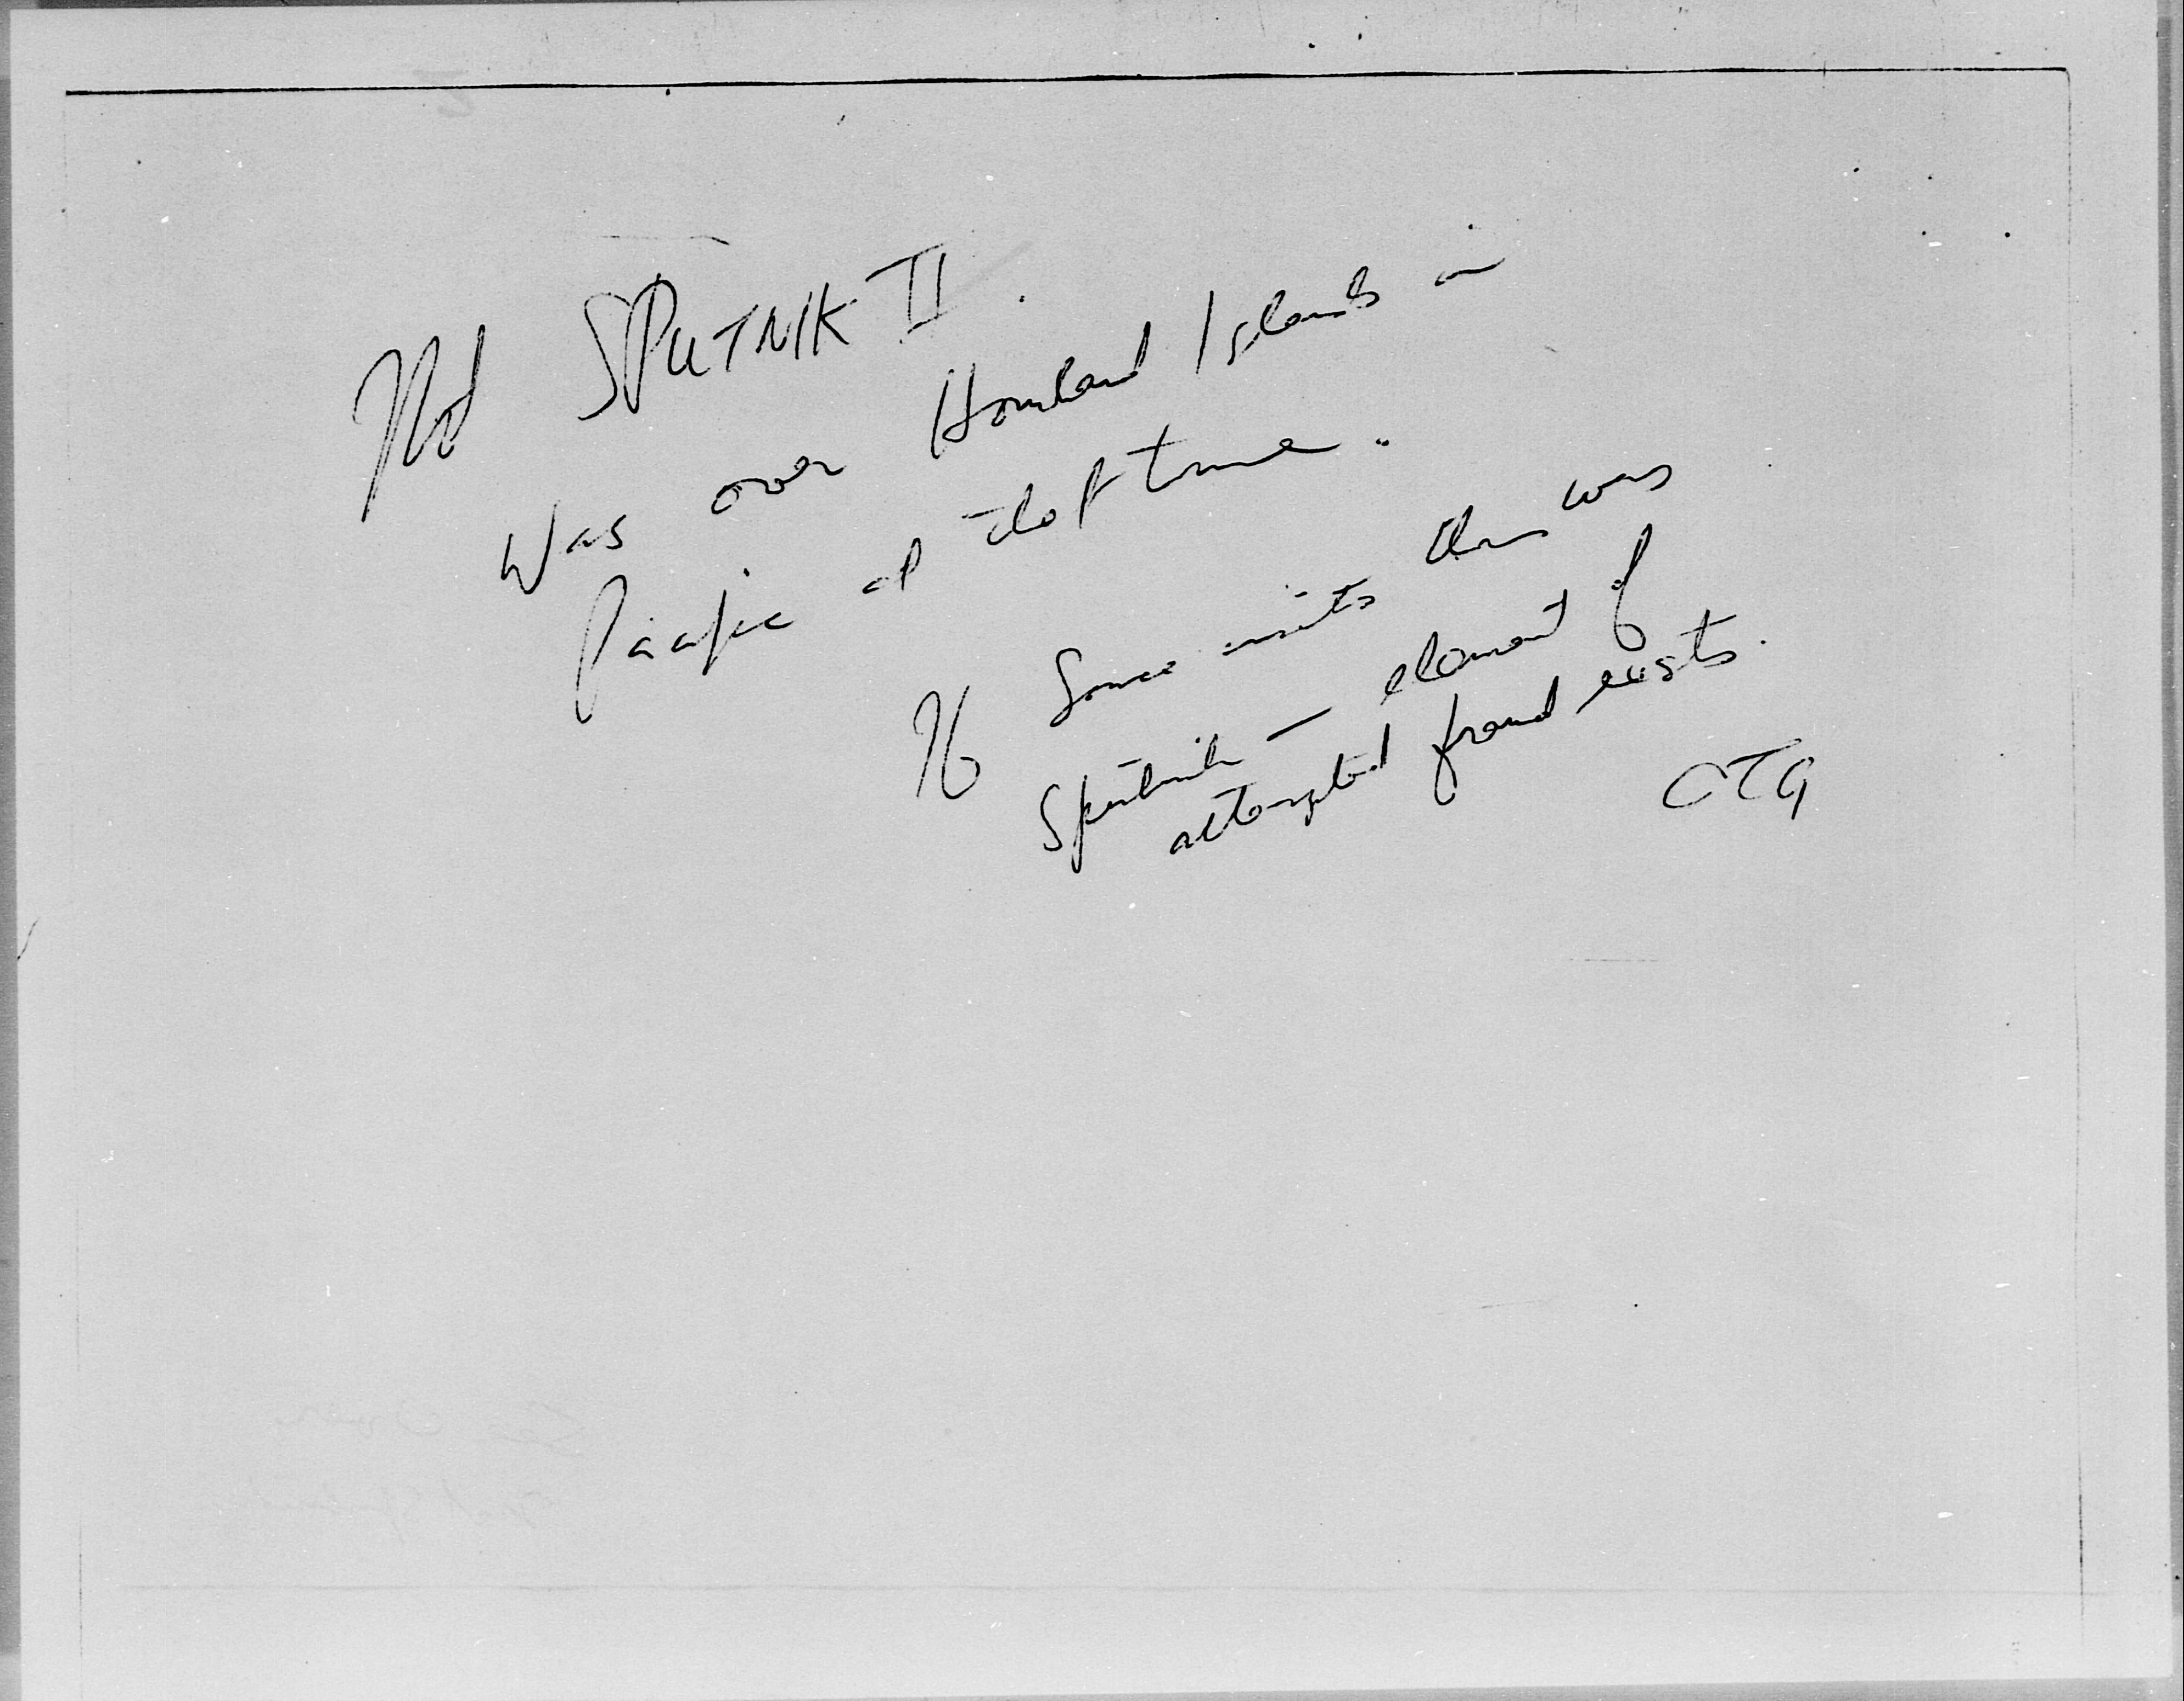 Not SPUTNIK II.
Was over Howland Islands in
Pacific at that time.
If Source insists this was
Sputnik — element of
attempted fraud exists.
OTG